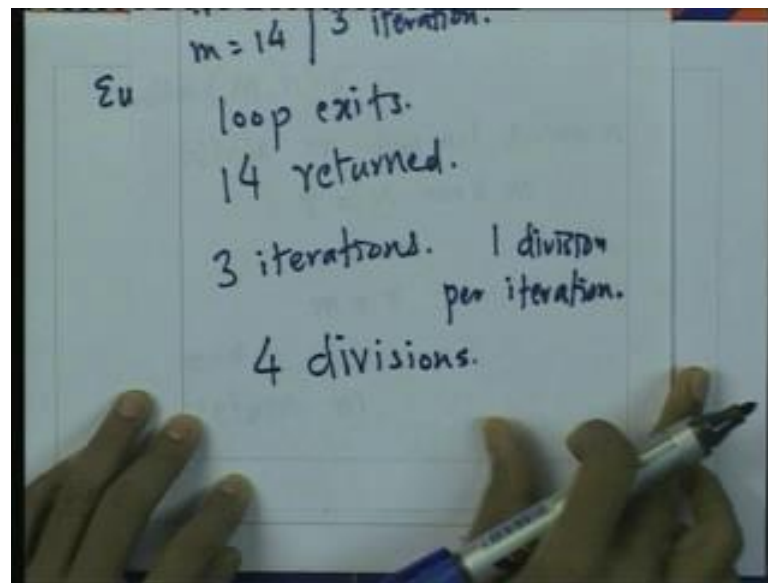 m = 14 | 3 iteration.
Eu
loop exits.
14 returned.
3 iterations. 1 division
per iteration.
4 divisions.